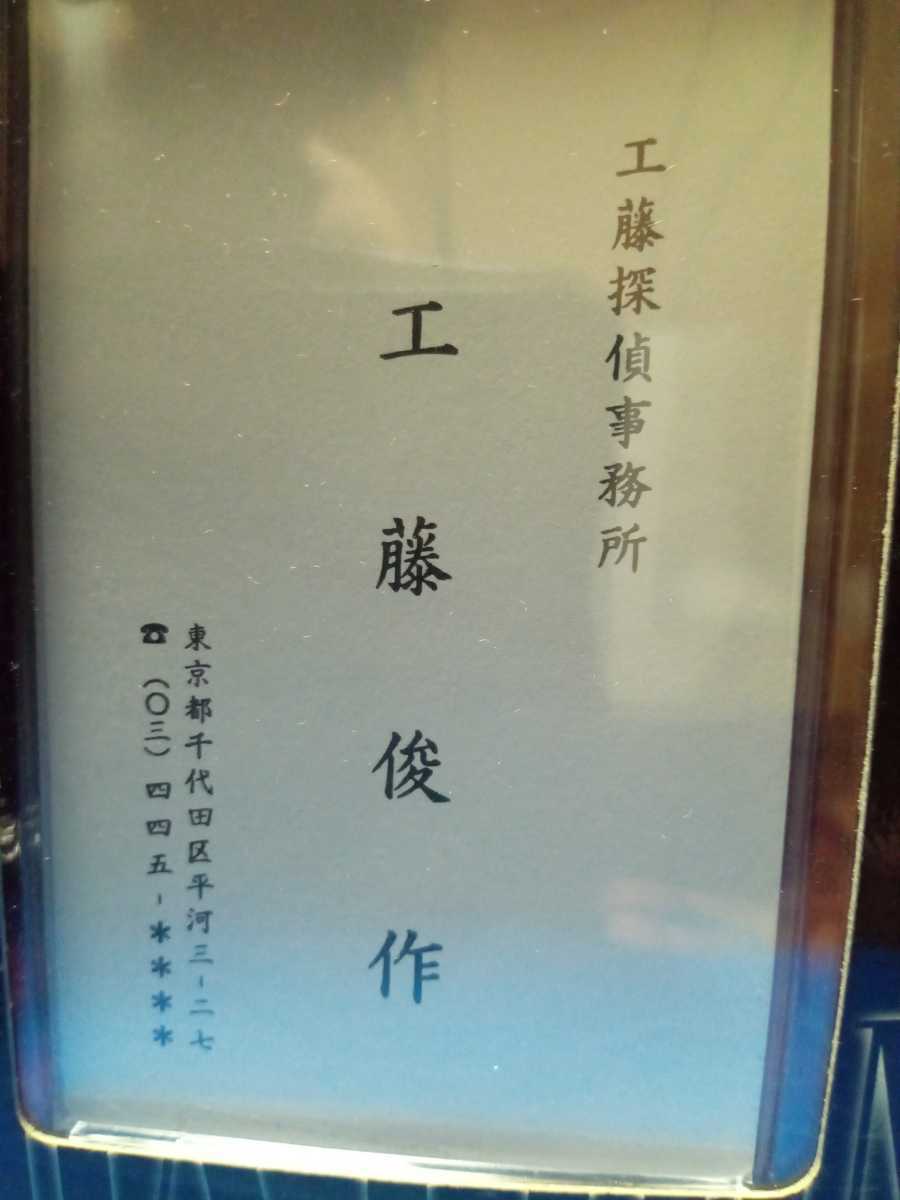 工藤探偵事務所
工藤俊作
東京都千代田区平河三-二七
☎(〇三)四四五-＊＊＊＊